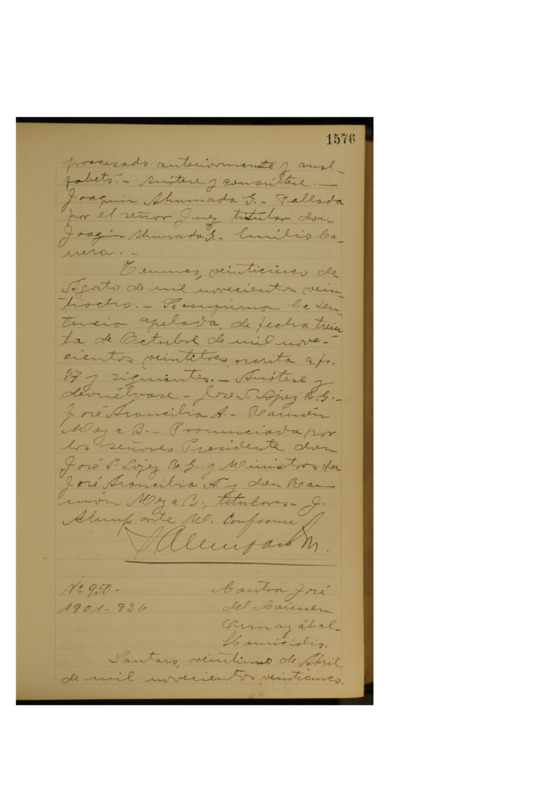 1576
procesado anteriormente y anal-
fabeto.- Anótese y consúltese.-
Joaquín Ahumada G.- Fallada
por el señor Juez titular don
Joaquín Ahumada G.- Emilio Ca-
rrera.-
Temuco, veinticinco de
Agosto de mil novecientos vein-
tiocho.- Se confirma la sen-
tencia apelada, de fecha trein
ta de Octubre de mil nove-
cientos veintitres, escrita a fs.
87 y siguientes.- Anótese y
devuélvase.- José S. López R. G.-
José Arancibia A.- Ramón
Meza B.- Pronunciada por
los señores Presidente don
José S. López R. G. y Ministros don
José Arancibia A. y don Ra-
món Meza B., titulares.- J.
M. Conforme
Nº 950.-
1901-926
José
del Carmen
Homicidio.
Lautaro, veintiuno de Abril
de mil novecientos veinticinco.